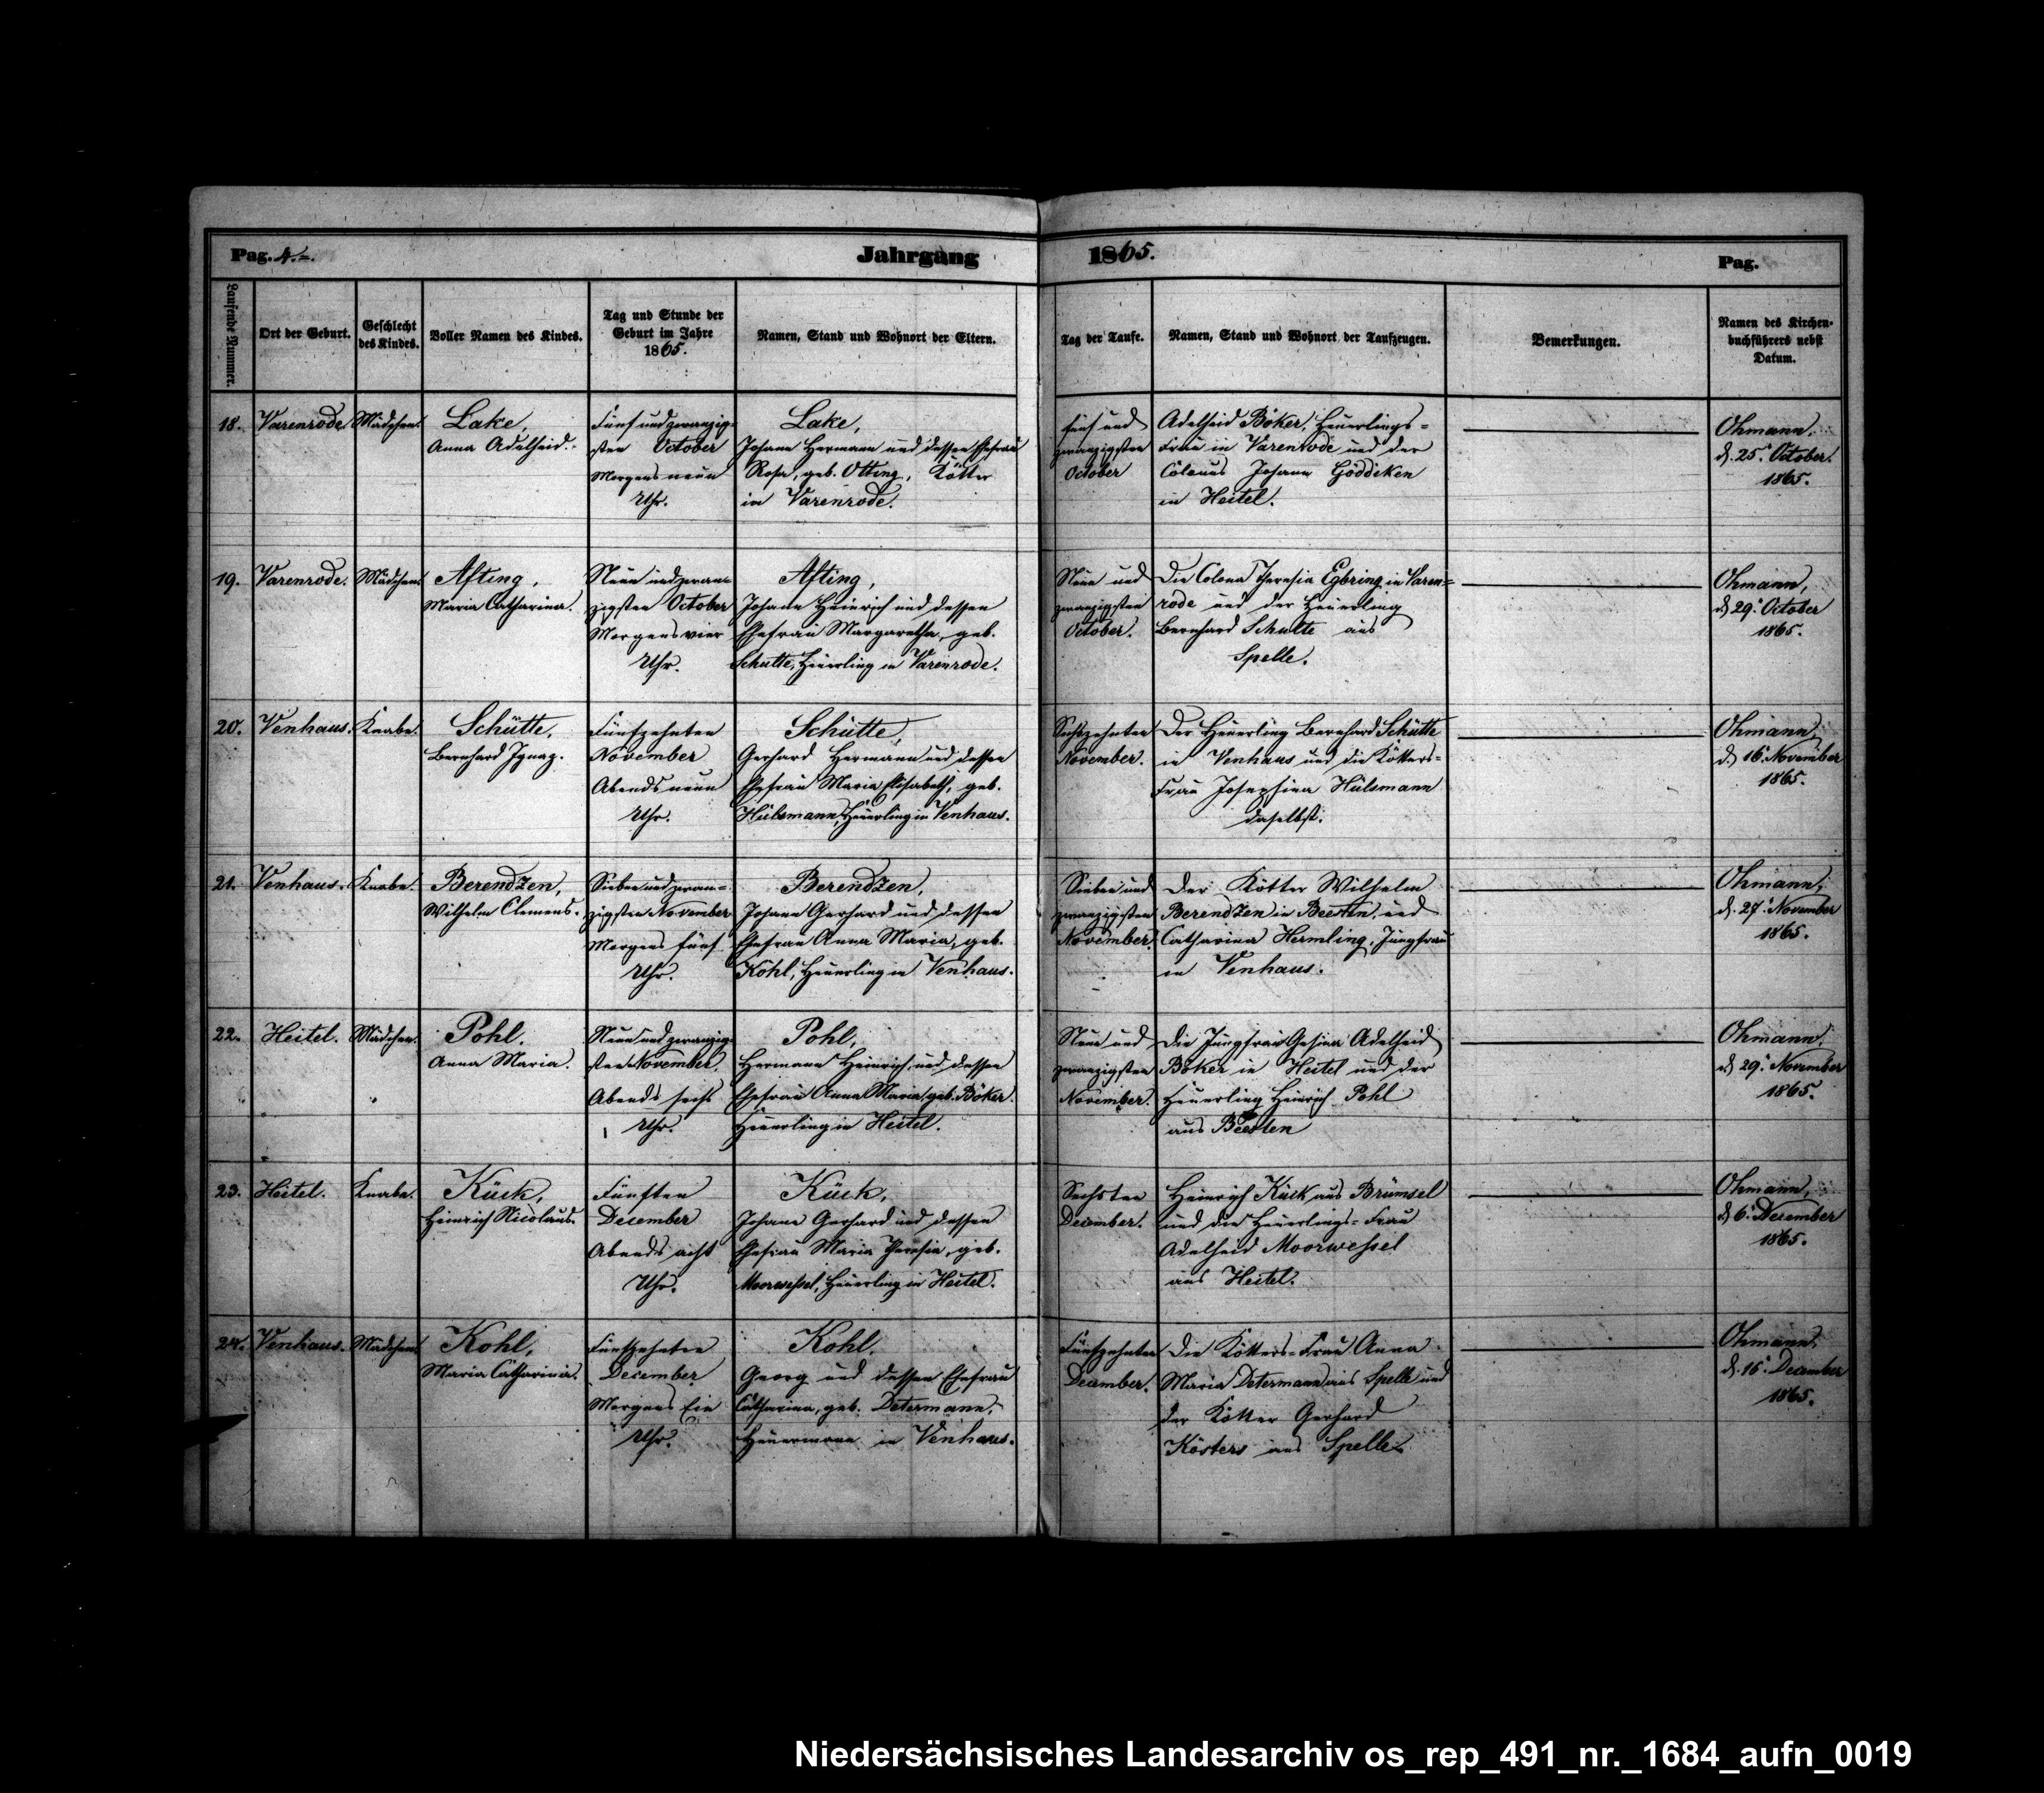 Pag. 4.
Jahrgang 1865.
Pag.
Laufende Nummer.
Ort der Geburt.
Geschlecht
des Kindes.
Voller Namen des Kindes.
Tag und Stunde der
Geburt im Jahre
1865.
Namen, Stand und Wohnort der Eltern.
Tag der Taufe.
Namen, Stand und Wohnort der Taufzeugen.
Bemerkungen.
Namen des Kirchen-
buchführers nebst
Datum.
18.
Varenrode.
Mädchen.
Lake,
Anna Adelheid.
Fünf und zwanzig-
sten October
Morgens neun
Uhr.
Lake,
Johann Hermann und dessen Ehefrau
Rosa, geb. Otting, Kötter
in Varenrode.
fünf und
zwanzigsten
October
Adelheid Böker, Heuerlings-
Frau in Varenrode und der
Colonus Johann Göddiken
in Heitel.
Ohmann,
d. 25. October.
1865.
19.
Varenrode.
Mädchen.
Afting,
Maria Catharina.
Neun und zwan-
zigsten October
Morgens vier
Uhr.
Afting,
Johann Heinrich und dessen
Ehefrau Margaretha, geb.
Schütte, Heuerling in Varenrode.
Neun und
zwanzigsten
October.
Die Colona Theresia Egbring in Varen-
rode und der Heuerling
Bernhard Schulte aus
Spelle.
Ohmann,
d. 29. October
1865.
20.
Venhaus.
Knabe.
Schütte,
Bernhard Ignaz.
Fünfzehnten
November
Abends neun
Uhr.
Schütte,
Gerhard Hermann und dessen
Ehefrau Maria Elisabeth, geb.
Hülsmann, Heuerling in Venhaus.
Sechszehnten
November.
Der Heuerling Bernhard Schütte
in Venhaus und die Kötters-
Frau Josephina Hülsmann
daselbst.
Ohmann,
d. 16. November
1865.
21.
Venhaus.
Knabe.
Berendzen,
Wilhelm Clemens.
Sieben und zwan-
zigsten November
Morgens fünf
Uhr.
Berendzen,
Johann Gerhard und dessen
Ehefrau Anna Maria, geb.
Kohl, Heuerling in Venhaus.
Sieben und
zwanzigsten
November.
Der Kötter Wilhelm
Berendzen in Beesten, und
Catharina Hermling, Jungfrau
in Venhaus.
Ohmann,
d. 27. November
1865.
22.
Heitel.
Mädchen.
Pohl.
Anna Maria.
Neun und zwanzig-
sten November.
Abends sechs
Uhr.
Pohl,
Hermann Heinrich und dessen
Ehefrau Anna Maria geb. Böker.
Heuerling in Heitel.
Neun und
zwanzigsten
November.
Die Jungfrau Gesina Adelheid
Böker in Heitel und der
Heuerling Heinrich Pohl
aus Beesten
Ohmann,
d. 29. November
1865.
23.
Heitel.
Knabe.
Kück,
Heinrich Nicolaus.
Fünften
December
Abends acht
Uhr.
Kück,
Johann Gerhard und dessen
Ehefrau Maria Theresia, geb.
Moorwessel, Heuerling in Heitel.
Sechsten
December.
Heinrich Kück aus Brümsel
und die Heuerlings-Frau
Adelheid Moorwessel
aus Heitel.
Ohmann,
d. 6. December
1865.
24.
Venhaus.
Mädchen.
Kohl,
Maria Catharina.
Fünfzehnten
December
Morgens Ein
Uhr.
Kohl.
Georg und dessen Ehefrau
Catharina, geb. Determann.
Heuermann in Venhaus.
Fünfzehnten
December.
Die Kötters-Frau Anna
Maria Determann aus Spelle und
der Kötter Gerhard
Kösters aus Spelle
Ohmann,
d. 15. December
1865.
Niedersächsisches Landesarchiv os_rep_491_nr._1684_aufn_0019